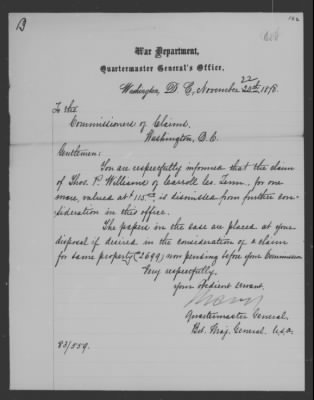 B
162
War Department,
Quartermaster General's Office,
Washington, D. C., November 22 20th 1878.
To the
Commissioners of Claims,
Washington, D.C.
Gentlemen:
You are respectfully informed that the claim
of Thos. P. Williams of Carroll Co. Tenn., for one
mare, valued at $115.00 is dismissed from further con-
sideration in this office.
The papers in the case are placed at your
disposal if desired in the consideration of a claim
for same property (2699) now pending before your Commission
Very respectfully,
Your obedient servant,
Quartermaster General,
Bvt. Maj. General, U.S.A.
83/559.